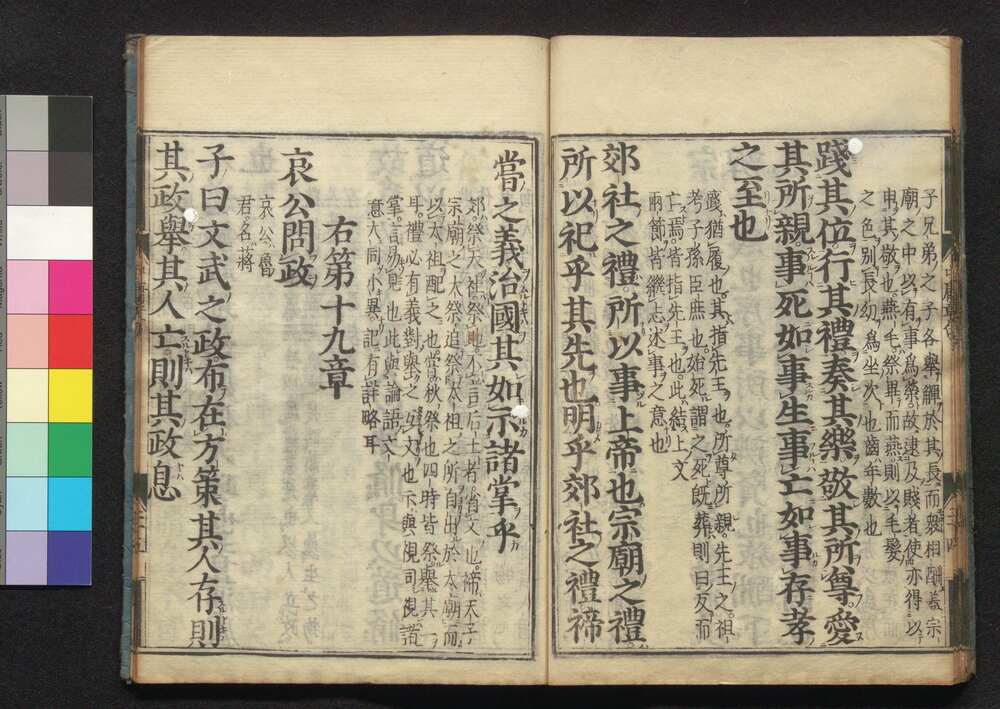 子兄弟之子各擧觶於其長而衆相酬蓋宗
廟之中以有事爲榮故逮及賤者使亦得以
申其敬也燕毛祭畢而燕則以毛髮
之色別長幼爲坐次也齒年數也
踐其位行其禮奏其樂敬其所尊愛
其所親事死如事生事亡如事存孝
之至也
踐猶履也其指先王也所尊所親先王之祖
考子孫臣庶也始死謂之死既葬則曰反而
亡焉皆指先王也此結上文
兩節皆繼志述事之意也
郊社之禮所以事上帝也宗廟之禮
所以祀乎其先也明乎郊社之禮禘
嘗之義治國其如示諸掌乎
郊祭天社祭地不言后土者省文也禘天子
宗廟之大祭追祭太祖之所自出於太廟而
以太祖配之也嘗秋祭也四時皆祭擧其一
耳禮必有義對擧之互文也示與視同視諸
掌言易見也此與論語文
意大同小異記有詳略耳
右第十九章
哀公問政
哀公魯
君名蔣
子曰文武之政布在方策其人存則
其政擧其人亡則其政息